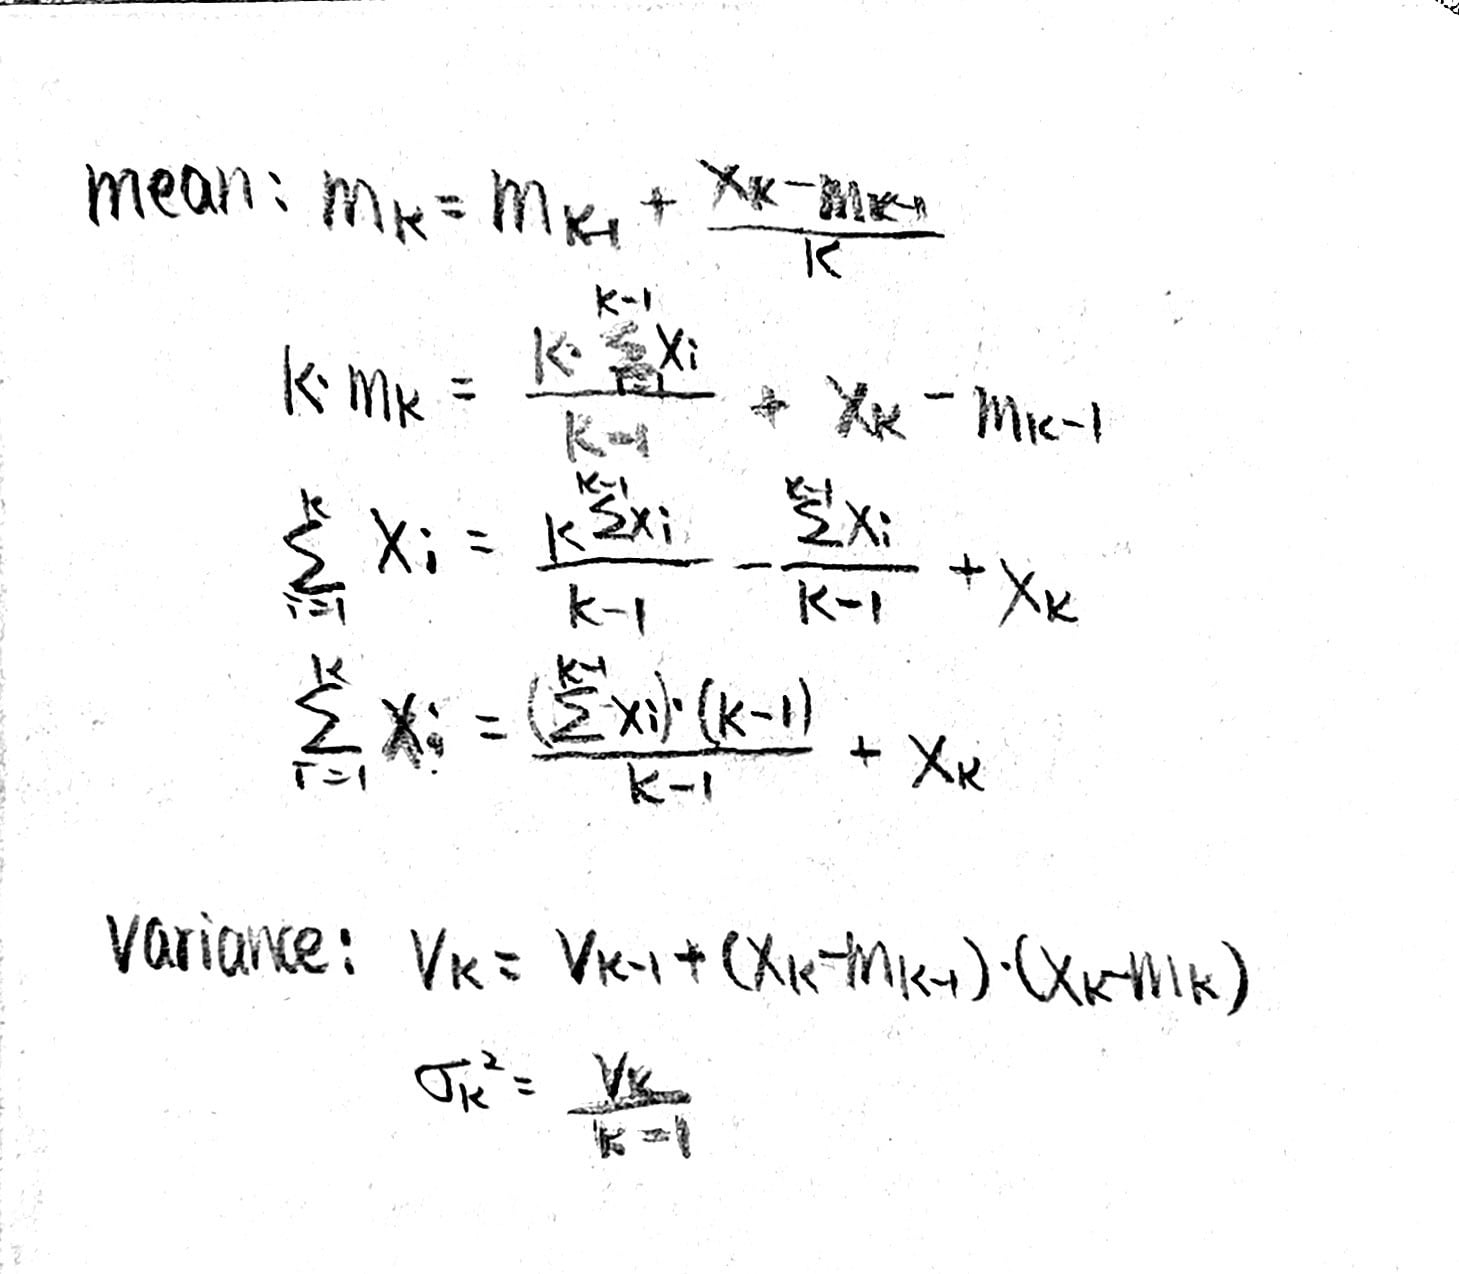 mean: m_k = m_{k-1} + \frac{x_k - m_{k-1}}{k}
k \cdot m_k = \frac{k \cdot \sum_{i=1}^{k-1} x_i}{k-1} + x_k - m_{k-1}
\sum_{i=1}^{k} x_i = \frac{k \sum^{k-1} x_i}{k-1} - \frac{\sum^{k-1} x_i}{k-1} + x_k
\sum_{i=1}^{k} x_i = \frac{(\sum^{k-1} x_i) \cdot (k-1)}{k-1} + x_k
variance: v_k = v_{k-1} + (x_k - m_{k-1}) \cdot (x_k - m_k)
\sigma_k^2 = \frac{v_k}{k-1}